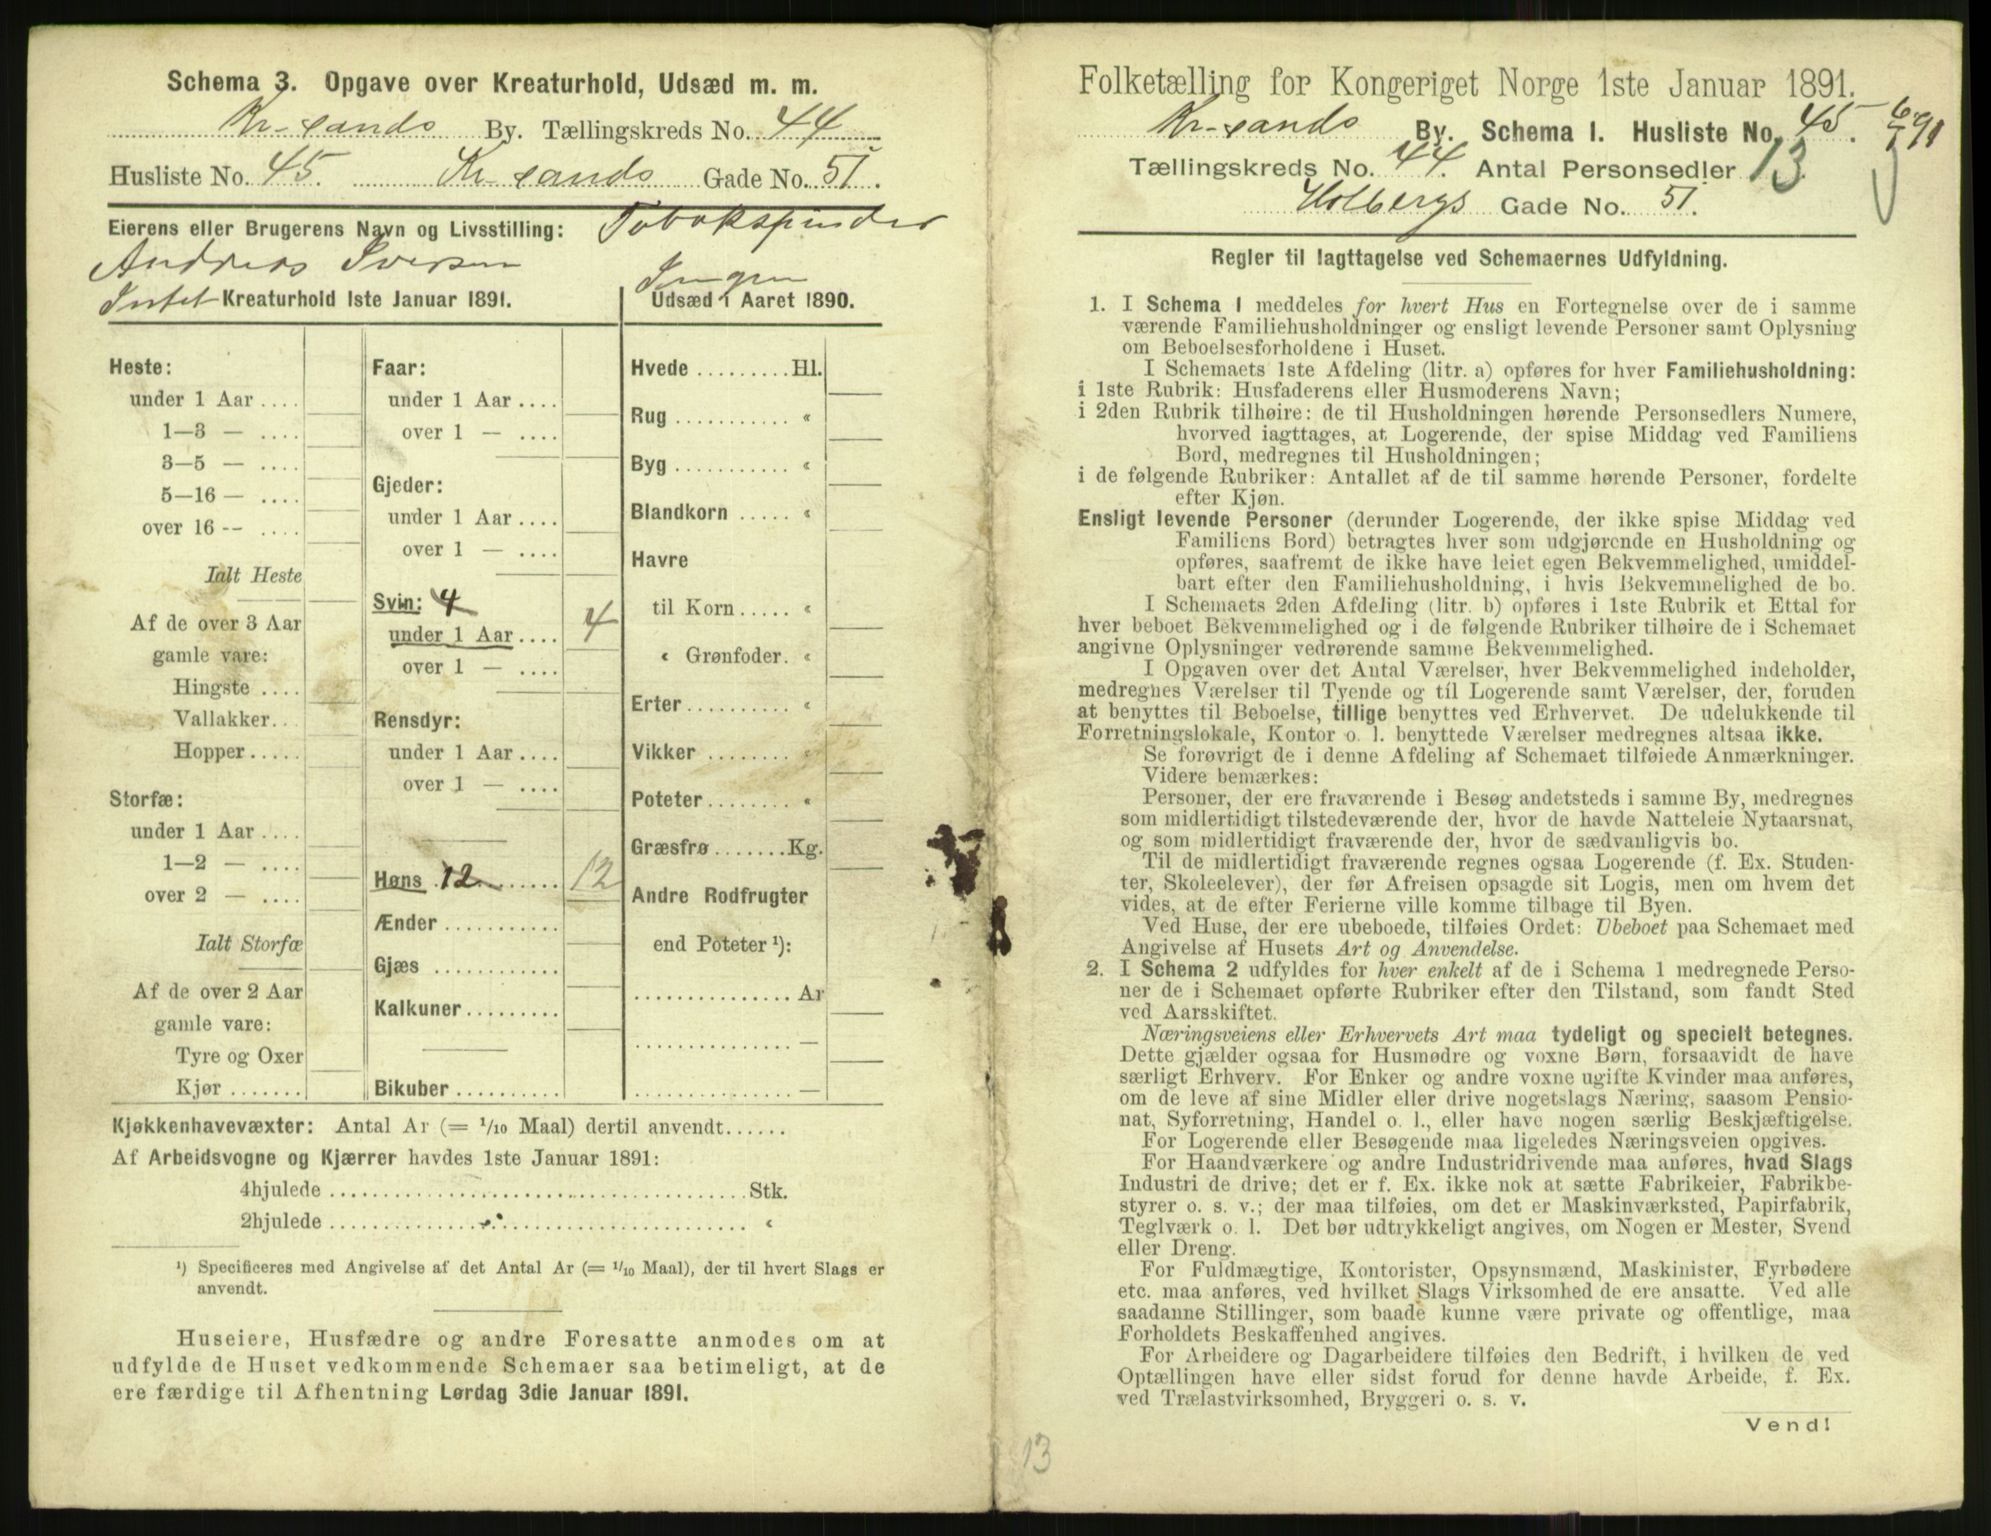 Schema 3. Opgave over Kreaturhold, Udsæd m. m.
Kr-sands By. Tællingskreds No. 44
Husliste No. 45. Kr-sands Gade No. 51.
Eierens eller Brugerens Navn og Livsstilling: Tobakspinder
Andreas Iversen
Intet Kreaturhold 1ste Januar 1891.
Ingen
Udsæd i Aaret 1890.
Heste:
under 1 Aar ....
1—3 — ....
3—5 — ....
5—16 — ....
over 16 -- ....
Ialt Heste
Af de over 3 Aar
gamle vare:
Hingste ....
Vallakker...
Hopper.....
Storfæ:
under 1 Aar ....
1—2 — ....
over 2 — ....
Ialt Storfæ
Af de over 2 Aar
gamle vare:
Tyre og Oxer
Kjør .......
Faar:
under 1 Aar ....
over 1 — ....
Gjeder:
under 1 Aar ....
over 1 — ....
Svin: 4
under 1 Aar .... 4
over 1 — ....
Rensdyr:
under 1 Aar ....
over 1 — ....
Høns 12 ...... 12
Ænder ...........
Gjæs ............
Kalkuner.........
Bikuber ..........
Hvede .........Hl.
Rug ........... «
Byg ........... «
Blandkorn ..... «
Havre
til Korn ..... «
« Grønfoder. «
Erter.......... «
Vikker ........ «
Poteter........ «
Græsfrø.......Kg.
Andre Rodfrugter
end Poteter ¹):
............... Ar
............... —
............... —
Kjøkkenhavevæxter: Antal Ar (= 1/10 Maal) dertil anvendt......
Af Arbeidsvogne og Kjærrer havdes 1ste Januar 1891:
4hjulede ........................................Stk.
2hjulede ........................................ «
¹) Specificeres med Angivelse af det Antal Ar (= 1/10 Maal), der til hvert Slags er
anvendt.
Huseiere, Husfædre og andre Foresatte anmodes om at
udfylde de Huset vedkommende Schemaer saa betimeligt, at de
ere færdige til Afhentning Lørdag 3die Januar 1891.
Folketælling for Kongeriget Norge 1ste Januar 1891.
Kr-sands By. Schema 1. Husliste No. 45.
Tællingskreds No. 44. Antal Personsedler 13
Holbergs Gade No. 51.
Regler til Iagttagelse ved Schemaernes Udfyldning.
1. I Schema 1 meddeles for hvert Hus en Fortegnelse over de i samme
værende Familiehusholdninger og ensligt levende Personer samt Oplysning
om Beboelsesforholdene i Huset.
I Schemaets 1ste Afdeling (litr. a) opføres for hver Familiehusholdning:
i 1ste Rubrik: Husfaderens eller Husmoderens Navn;
i 2den Rubrik tilhøire: de til Husholdningen hørende Personsedlers Numere,
hvorved iagttages, at Logerende, der spise Middag ved Familiens
Bord, medregnes til Husholdningen;
i de følgende Rubriker: Antallet af de til samme hørende Personer, fordelte
efter Kjøn.
Ensligt levende Personer (derunder Logerende, der ikke spise Middag ved
Familiens Bord) betragtes hver som udgjørende en Husholdning og
opføres, saafremt de ikke have leiet egen Bekvemmelighed, umiddel-
bart efter den Familiehusholdning, i hvis Bekvemmelighed de bo.
I Schemaets 2den Afdeling (litr. b) opføres i 1ste Rubrik et Ettal for
hver beboet Bekvemmelighed og i de følgende Rubriker tilhøire de i Schemaet
angivne Oplysninger vedrørende samme Bekvemmelighed.
I Opgaven over det Antal Værelser, hver Bekvemmelighed indeholder,
medregnes Værelser til Tyende og til Logerende samt Værelser, der, foruden
at benyttes til Beboelse, tillige benyttes ved Erhvervet. De udelukkende til
Forretningslokale, Kontor o. l. benyttede Værelser medregnes altsaa ikke.
Se forøvrigt de i denne Afdeling af Schemaet tilføiede Anmærkninger.
Videre bemærkes:
Personer, der ere fraværende i Besøg andetsteds i samme By, medregnes
som midlertidigt tilstedeværende der, hvor de havde Natteleie Nytaarsnat,
og som midlertidigt fraværende der, hvor de sædvanligvis bo.
Til de midlertidigt fraværende regnes ogsaa Logerende (f. Ex. Studen-
ter, Skoleelever), der før Afreisen opsagde sit Logis, men om hvem det
vides, at de efter Ferierne ville komme tilbage til Byen.
Ved Huse, der ere ubeboede, tilføies Ordet: Ubeboet paa Schemaet med
Angivelse af Husets Art og Anvendelse.
2. I Schema 2 udfyldes for hver enkelt af de i Schema 1 medregnede Perso-
ner de i Schemaet opførte Rubriker efter den Tilstand, som fandt Sted
ved Aarsskiftet.
Næringsveiens eller Erhvervets Art maa tydeligt og specielt betegnes.
Dette gjælder ogsaa for Husmødre og voxne Børn, forsaavidt de have
særligt Erhverv. For Enker og andre voxne ugifte Kvinder maa anføres,
om de leve af sine Midler eller drive nogetslags Næring, saasom Pensio-
nat, Syforretning, Handel o. l., eller have nogen særlig Beskjæftigelse.
For Logerende eller Besøgende maa ligeledes Næringsveien opgives.
For Haandværkere og andre Industridrivende maa anføres, hvad Slags
Industri de drive; det er f. Ex. ikke nok at sætte Fabrikeier, Fabrikbe-
styrer o. s. v.; der maa tilføies, om det er Maskinværksted, Papirfabrik,
Teglværk o. l. Det bør udtrykkeligt angives, om Nogen er Mester, Svend
eller Dreng.
For Fuldmægtige, Kontorister, Opsynsmænd, Maskinister, Fyrbødere
etc. maa anføres, ved hvilket Slags Virksomhed de ere ansatte. Ved alle
saadanne Stillinger, som baade kunne være private og offentlige, maa
Forholdets Beskaffenhed angives.
For Arbeidere og Dagarbeidere tilføies den Bedrift, i hvilken de ved
Optællingen have eller sidst forud for denne havde Arbeide, f. Ex.
ved Trælastvirksomhed, Bryggeri o. s. v.
Vend!
13